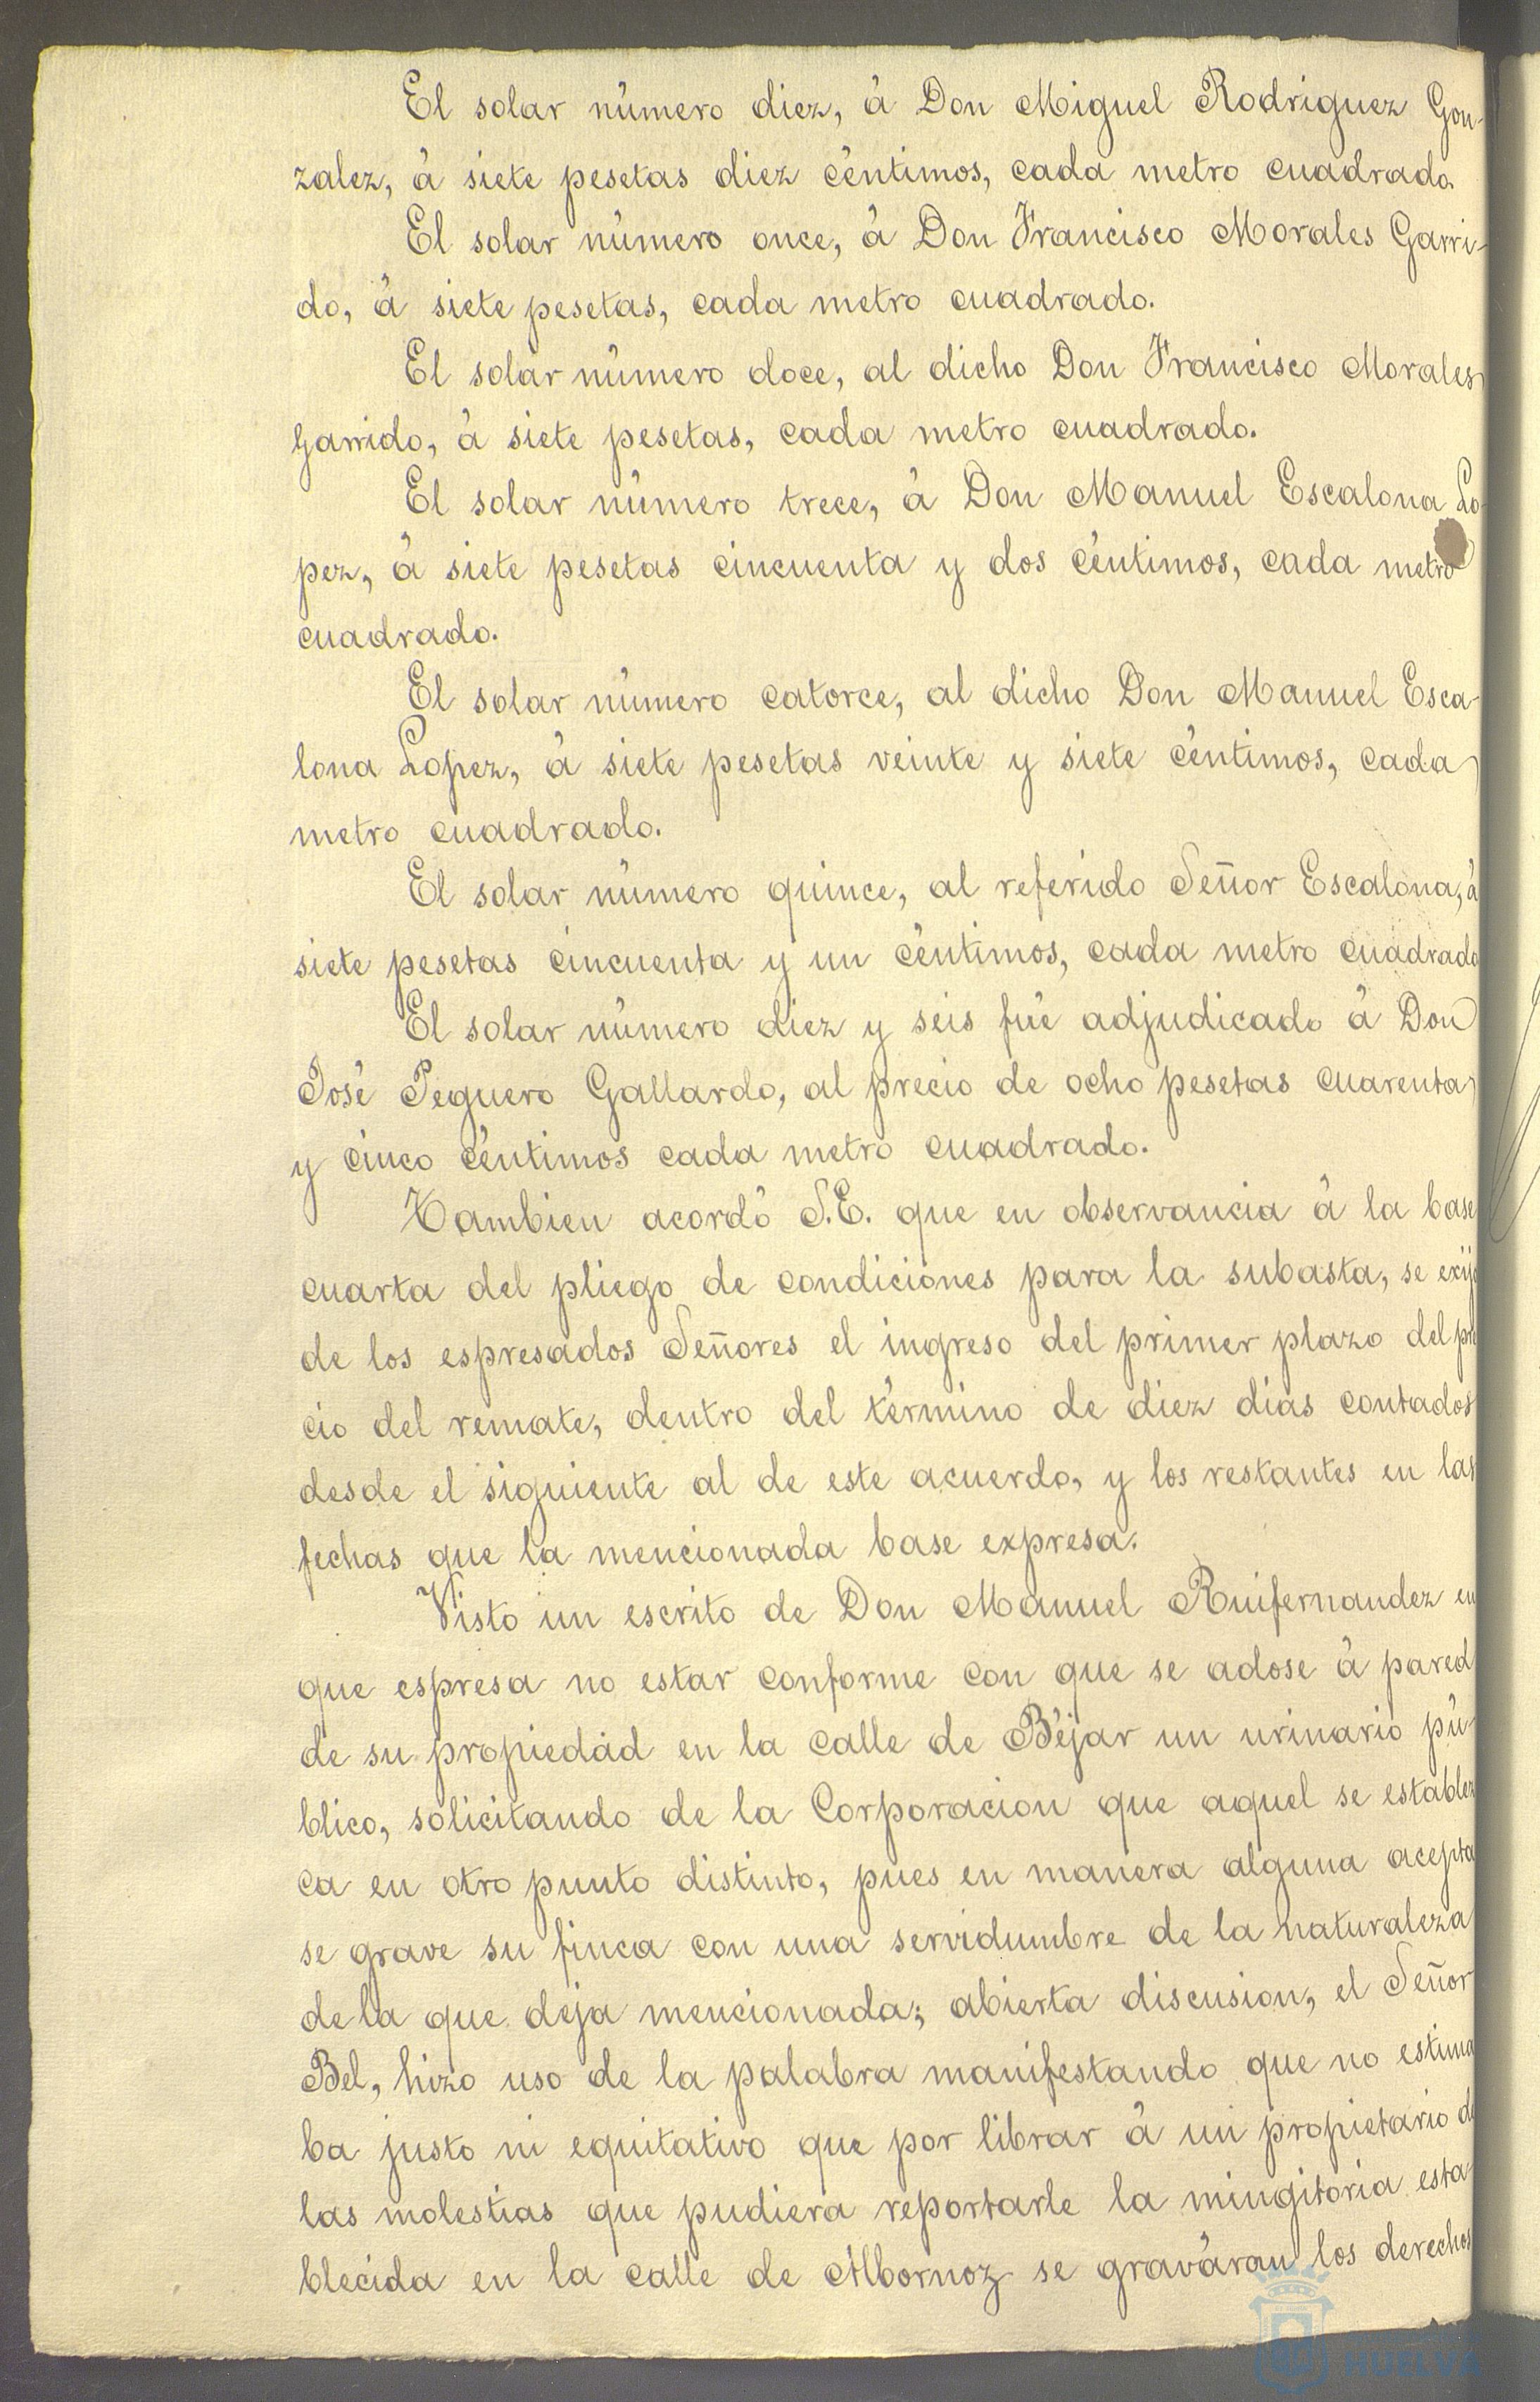 El solar número diez, á Don Miguel Rodriguez Gon-
zalez, á siete pesetas diez céntimos, cada metro cuadrado.
El solar número once, á Don Francisco Morales Garri-
do, á siete pesetas, cada metro cuadrado.
El solar número doce, al dicho Don Francisco Morales
Garrido, á siete pesetas, cada metro cuadrado.
El solar número trece, á Don Manuel Escalona Lo-
pez, á siete pesetas cincuenta y dos céntimos, cada metro
cuadrado.
El solar número catorce, al dicho Don Manuel Esca-
lona Lopez, á siete pesetas veinte y siete céntimos, cada
metro cuadrado.
El solar número quince, al referido Señor Escalona, á
siete pesetas cincuenta y un céntimos, cada metro cuadrado
El solar número diez y seis fué adjudicado á Don
José Peguero Gallardo, al precio de ocho pesetas cuarenta
y cinco céntimos cada metro cuadrado.
Tambien acordó S.E. que en observancia á la base
cuarta del pliego de condiciones para la subasta, se exija
de los espresados Señores el ingreso del primer plazo del pre
cio del remate, dentro del término de diez dias contados
desde el siguiente al de este acuerdo, y los restantes en las
fechas que la mencionada base expresa.
Visto un escrito de Don Manuel Ruifernandez en
que espresa no estar conforme con que se adose á pared
de su propiedad en la calle de Béjar un urinario pú-
blico, solicitando de la Corporacion que aquel se establez
ca en otro punto distinto, pues en manera alguna acepta
se grave su finca con una servidumbre de la naturaleza
de la que deja mencionada; abierta discusion, el Señor
Bel, hizo uso de la palabra manifestando que no estima
ba justo ni equitativo que por librar á un propietario de
las molestias que pudiera reportarle la mingitoria esta-
blecida en la calle de Albornoz se graváran los derechos
HUELVA